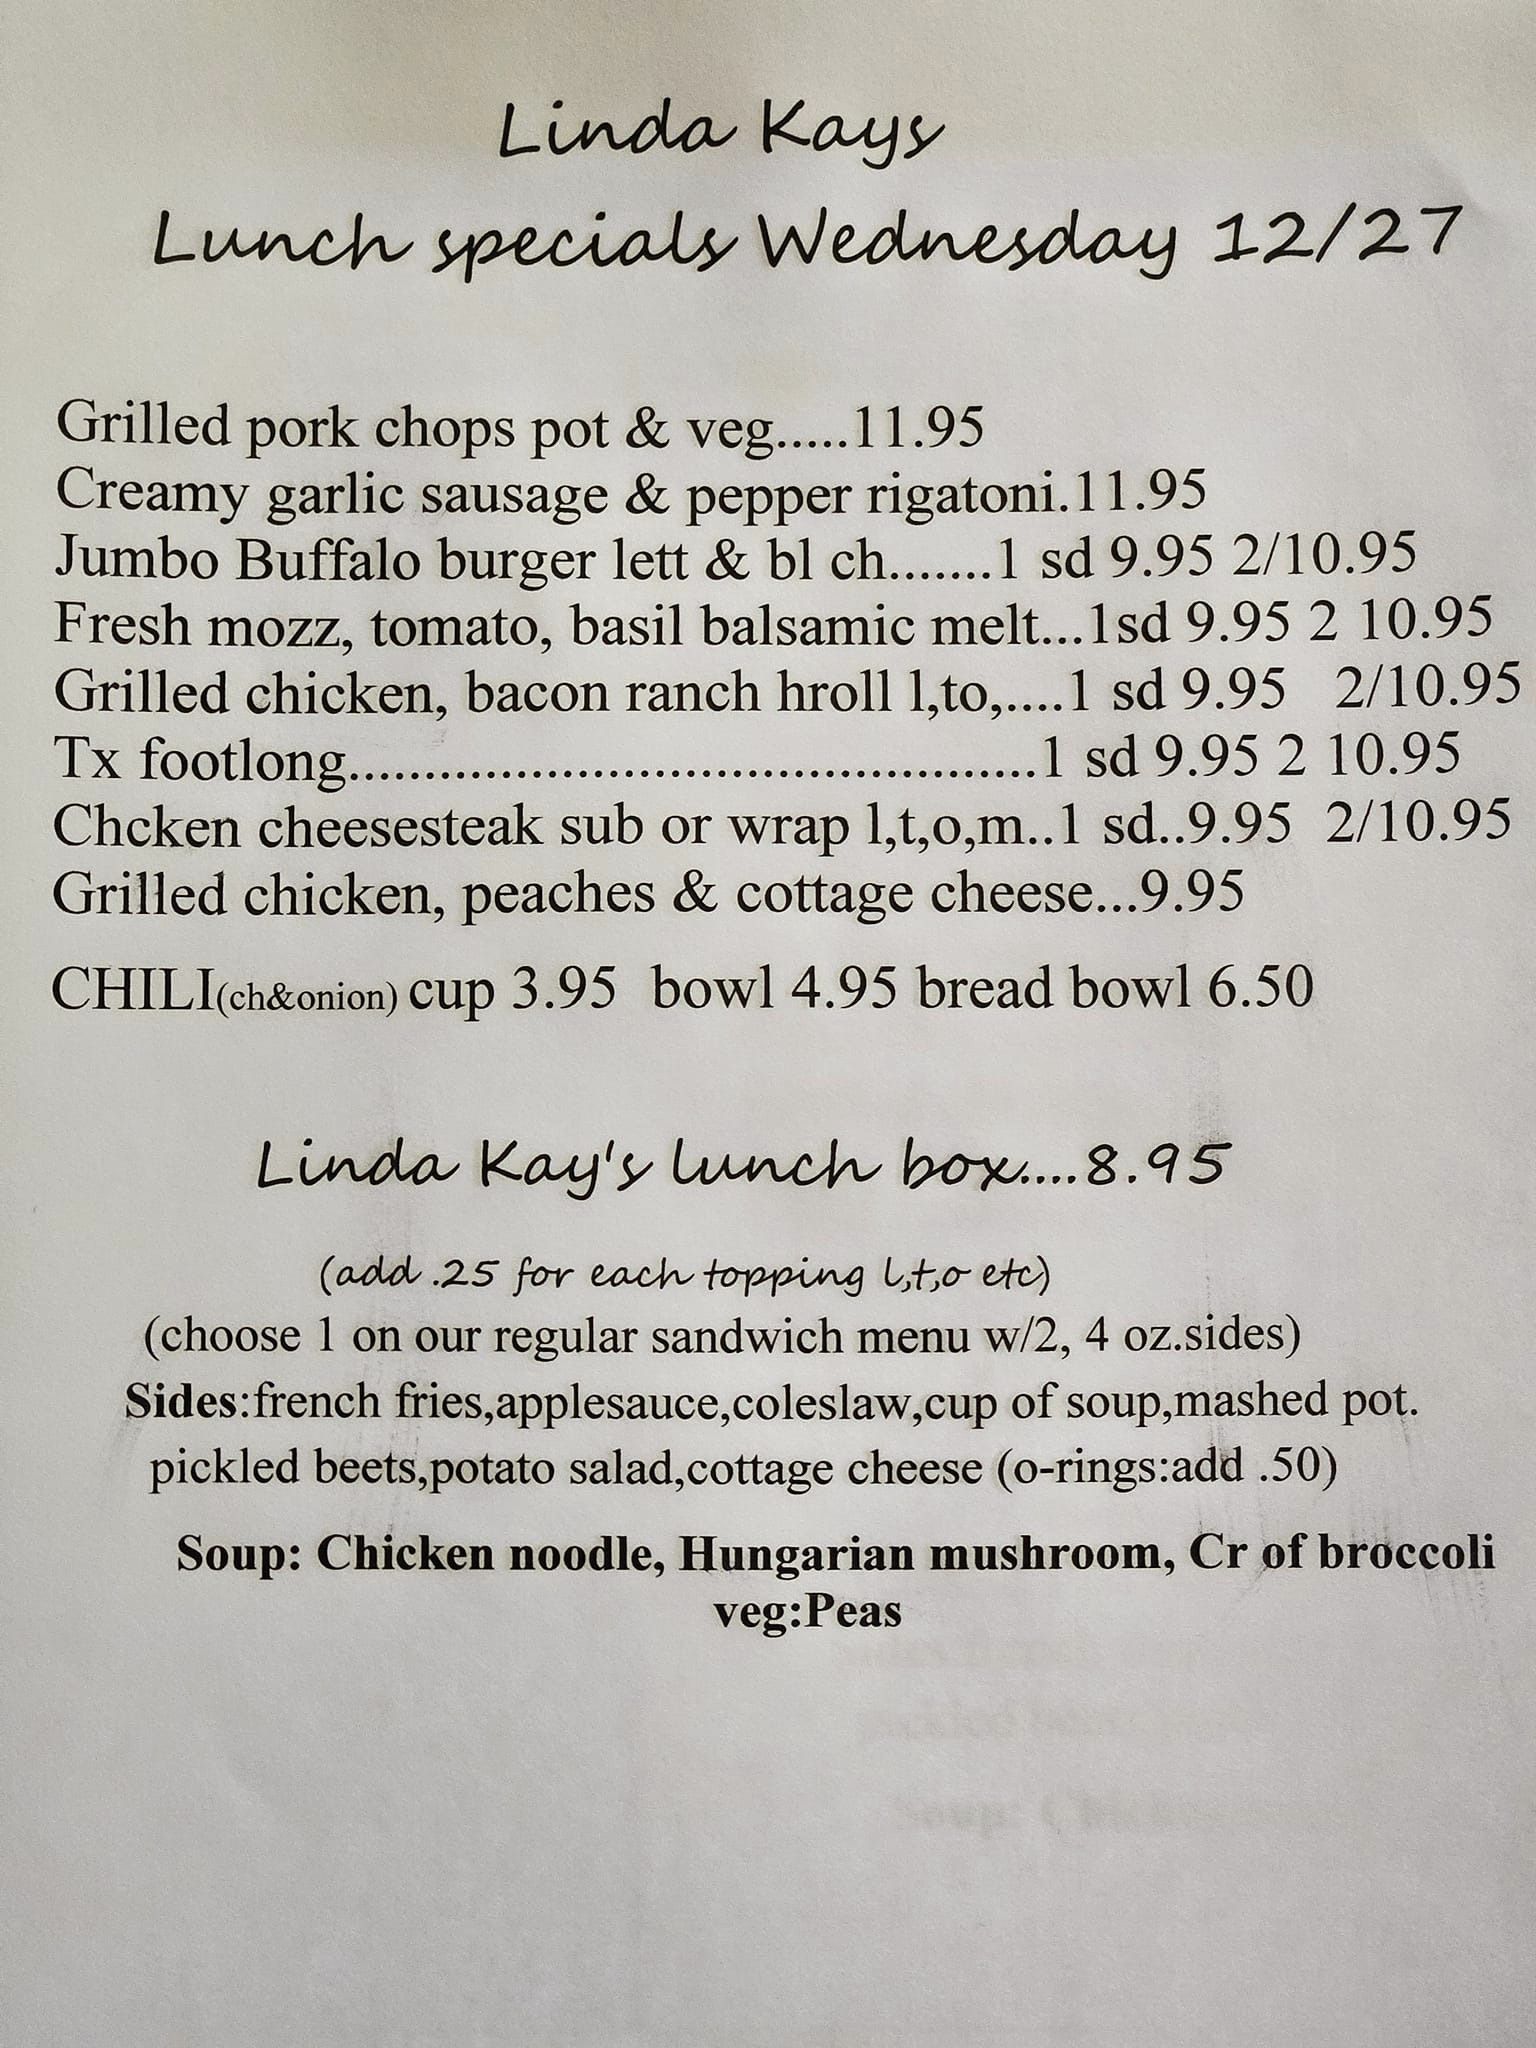 Linda Kays
Lunch specials Wednesday 12/27
Grilled pork chops pot & veg.....11.95
Creamy garlic sausage & pepper rigatoni.11.95
Jumbo Buffalo burger lett & bl ch.......1 sd 9.95 2/10.95
Fresh mozz, tomato, basil balsamic melt...1sd 9.95 2 10.95
Grilled chicken, bacon ranch hroll l,to,....1 sd 9.95 2/10.95
Tx footlong...............................................1 sd 9.95 2 10.95
Chcken cheesesteak sub or wrap l,t,o,m..1 sd..9.95 2/10.95
Grilled chicken, peaches & cottage cheese...9.95
CHILI(ch&onion) cup 3.95 bowl 4.95 bread bowl 6.50
Linda Kay's lunch box....8.95
(add .25 for each topping l,t,o etc)
(choose 1 on our regular sandwich menu w/2, 4 oz.sides)
Sides:french fries,applesauce,coleslaw,cup of soup,mashed pot.
pickled beets,potato salad,cottage cheese (o-rings:add .50)
Soup: Chicken noodle, Hungarian mushroom, Cr of broccoli
veg:Peas